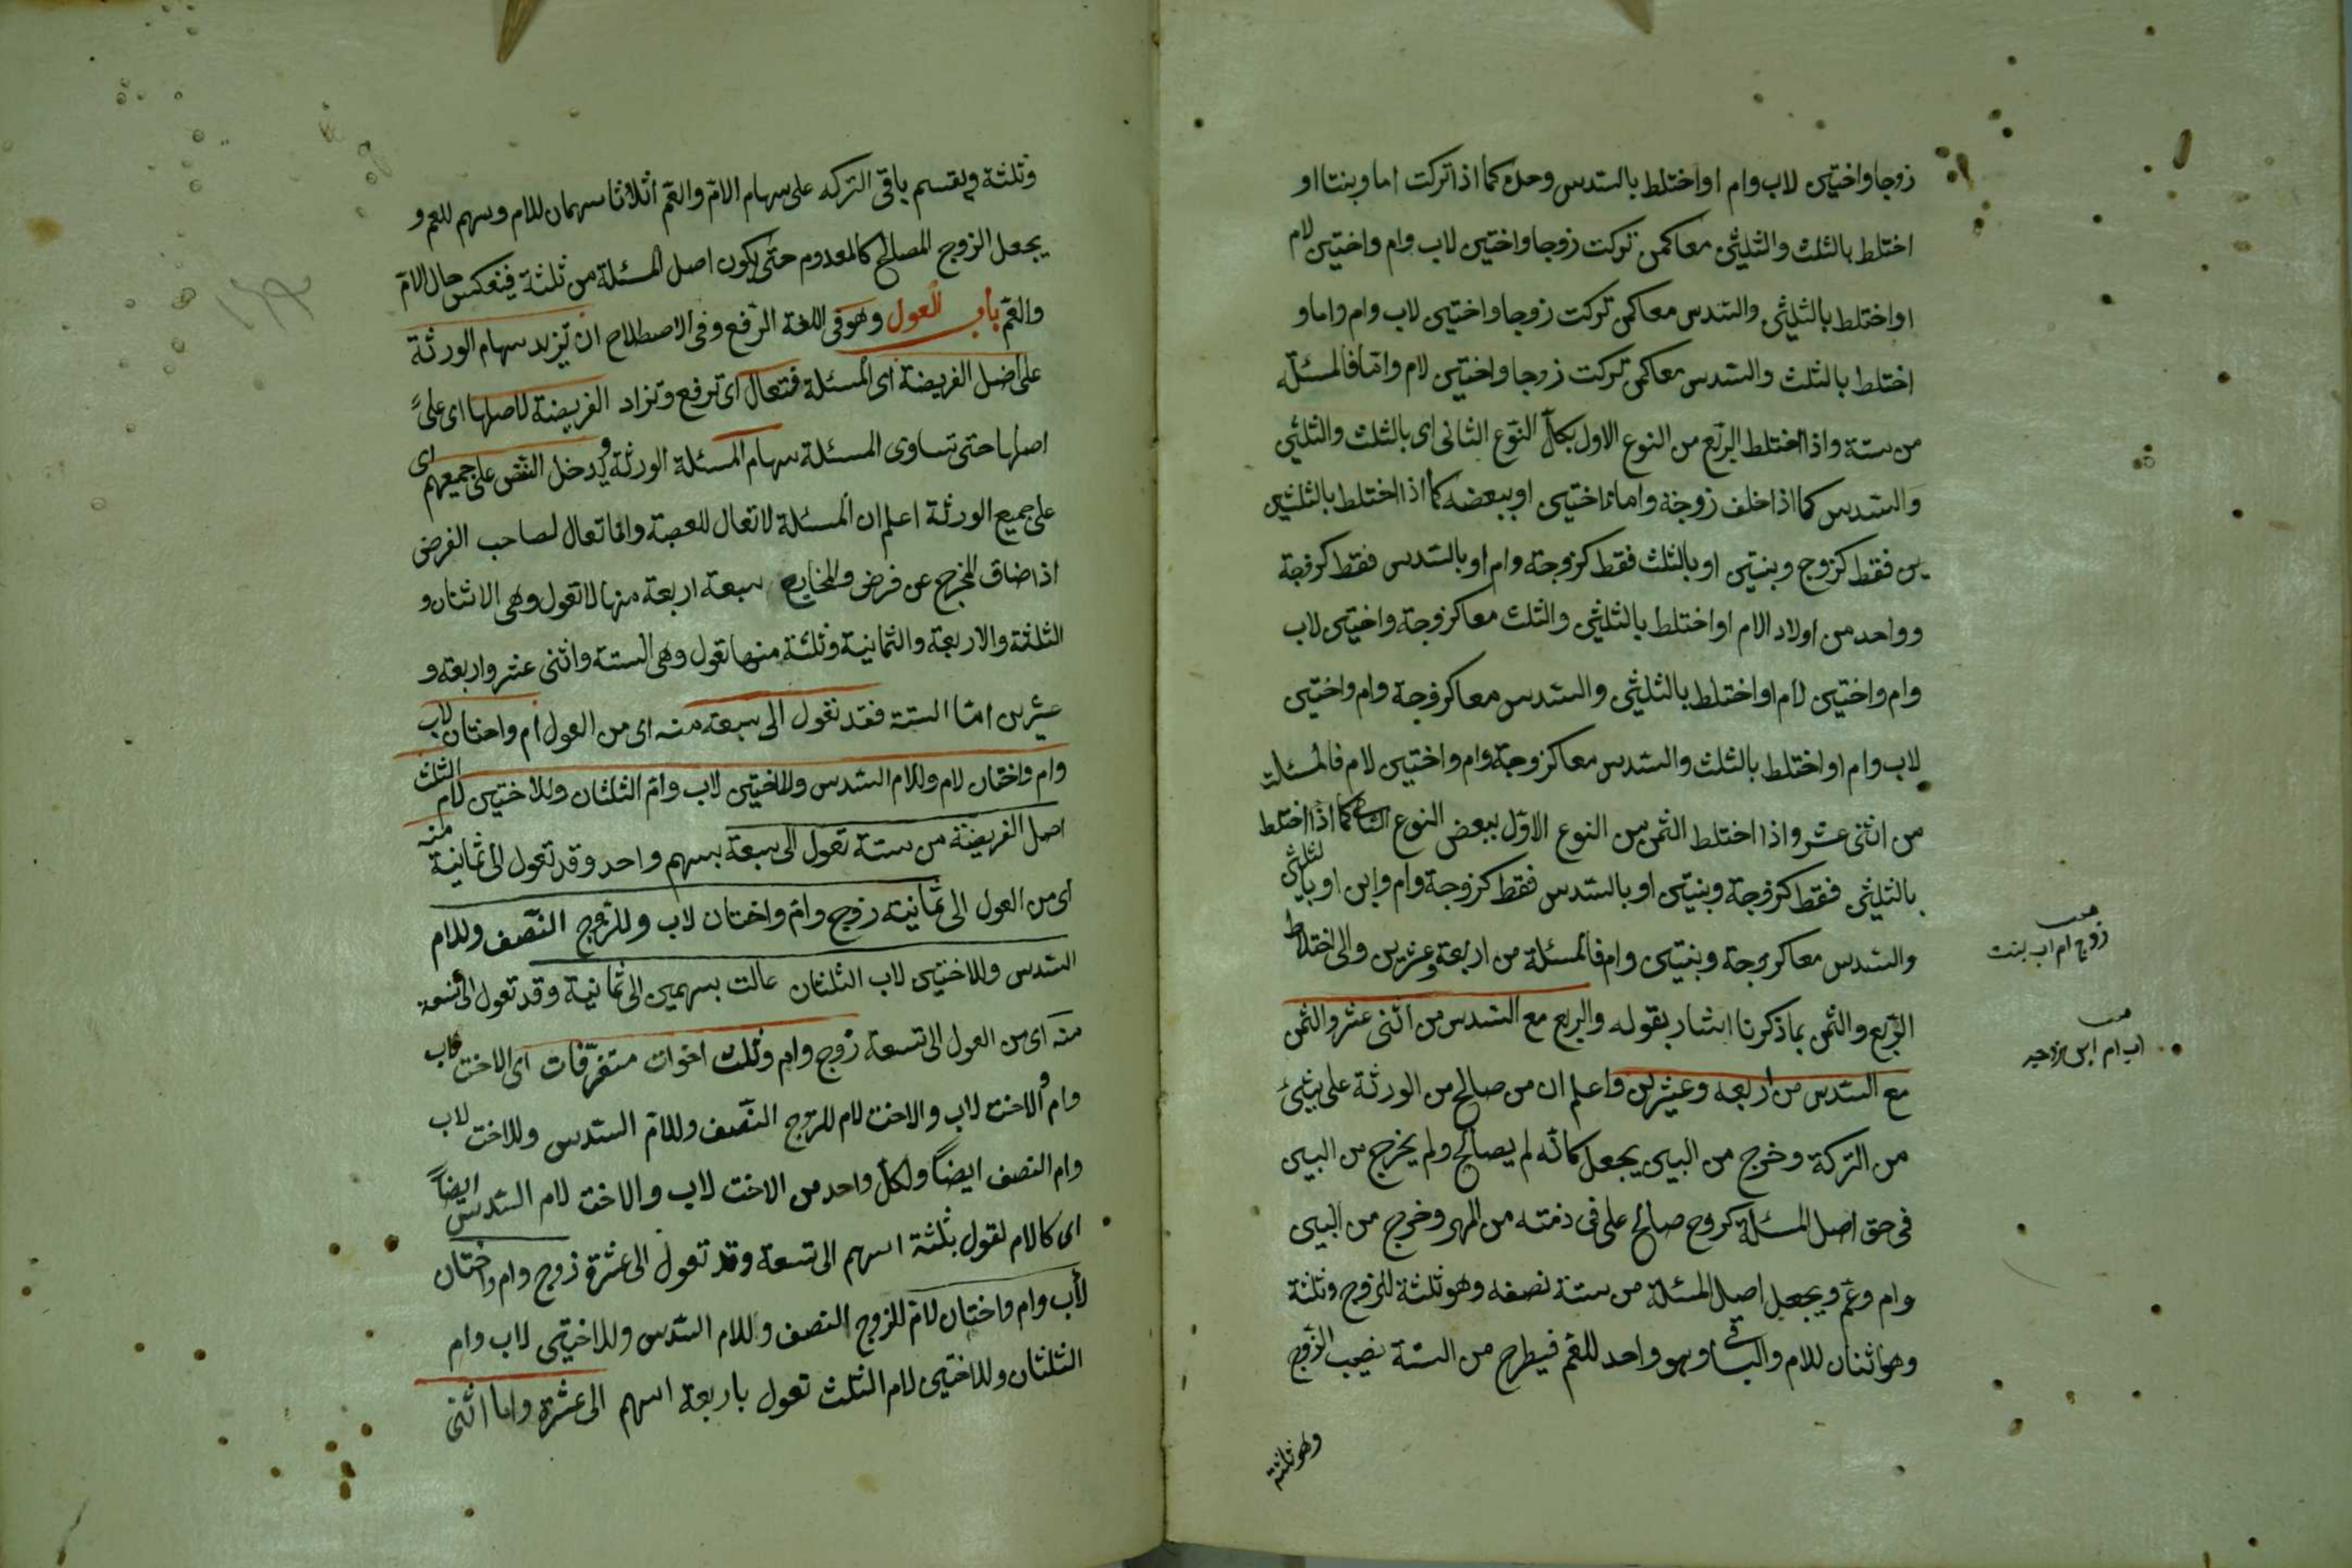 زوجا واختين لاب وام او اختلط بالسدس وحده كما اذا تركت اما وبنتا او
اختلط بالثلث والثلثين معا كمن تركت زوجا واختين لاب وام واختين لام
او اختلط بالثلثين والسدس معا كمن تركت زوجا واختين لاب وام واما و
اختلط بالثلث والسدس معا كمن تركت زوجا واختين لام واما فالمسئلة
من ستة واذا اختلط الربع من النوع الاول بكل النوع الثانى اى بالثلث والثلثين
والسدس كما اذا خلف زوجة واما اختين او ببعضه كما اذا اختلط بالثلثين
ين فقط كزوج وبنتين او بالثلث فقط كزوجة وام او بالسدس فقط كزوجة
وواحد من اولاد الام او اختلط بالثلثين والثلث معا كزوجة واختين لاب
وام واختين لام او اختلط بالثلثين والسدس معا كزوجة وام واختين
لاب وام او اختلط بالثلث والسدس معا كزوجة وام واختين لام فالمسئلة
من اثنى عشر واذا اختلط الثمن من النوع الاول ببعض النوع الثانى كما اذا اختلط
بالثلثين فقط كزوجة وبنتين او بالسدس فقط كزوجة وام وابن او بالثلثين
والسدس معا كزوجة وبنتين وام فالمسئلة من اربعة وعشرين والى اختلاط
الربع والثمن بما ذكرنا اشار بقوله والربع مع السدس من اثنى عشر والثمن
مع السدس من اربعة وعشرين واعلم ان من صالح من الورثة على شئ
من التركة وخرج من البين يجعل كانه لم يصالح ولم يخرج من البين
فى حق اصل المسئلة كزوج صالح على فى ذمته من المهر وخرج من البين
وام وعم ويجعل اصل المسئلة من ستة نصفه وهو ثلثة للزوج وثلثة
وهو اثنان للام والباقى وهو واحد للعم فيطرح من الستة نصيب الزوج
وهو ثلثة
زوج ام اب بنت
اب ام ابن زوجه
وثلثة ويقسم باقى التركه على سهام الام والعم اثلاثا سهمان للام وسهم للعم و
يجعل الزوج المصالح كالمعدوم حتى يكون اصل المسئلة من ثلثة فينعكس حال الام
والعم باب العول وهو فى اللغة الرفع وفى الاصطلاح ان تزيد سهام الورثة
على اصل الفريضة اى المسئلة فتعال اى ترفع وتزاد الفريضة لاصلها اى على
اصلها حتى تساوى المسئلة سهام المسئلة الورثة ويدخل النقص على جميعهم اى
على جميع الورثة اعلم ان المسئلة لا تعال للعصبة وانما تعال لصاحب الفرض
اذا ضاق المخرج عن فرض والمخارج سبعة اربعة منها لا تعول وهى الاثنان و
الثلثة والاربعة والثمانية وثلثة منها تعول وهى الستة واثنى عشر واربعة و
عشرين اما الستة فقد تعول الى سبعة منه اى من العول ام واختان لاب
وام واختان لام وللام السدس وللاختين لاب وام الثلثان وللاختين لام الثلث
اصل الفريضة من ستة تعول الى سبعة بسهم واحد وقد تعول الى ثمانية منه
اى من العول الى ثمانية زوج وام واختان لاب وللزوج النصف وللام
السدس وللاختين لاب الثلثان عالت بسهمين الى ثمانية وقد تعول الى تسعة
منه اى من العول الى تسعة زوج وام وثلث اخوات متفرقات اى الاخت لاب
وام والاخت لاب والاخت لام للزوج النصف وللام السدس وللاخت لاب
وام النصف ايضا ولكل واحد من الاخت لاب والاخت لام السدس ايضا
اى كالام تعول بثلثة اسهم الى تسعة وقد تعول الى عشرة زوج وام واختان
لاب وام واختان لام للزوج النصف وللام السدس وللاختين لاب وام
الثلثان وللاختين لام الثلث تعول باربعة اسهم الى عشرة واما اثنى